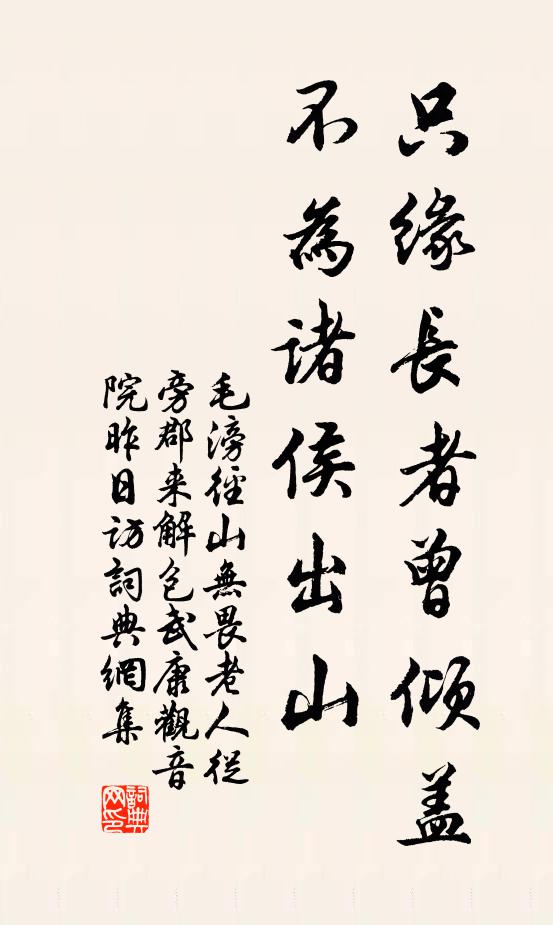 只緣長者曾傾盖
不為諸侯出山
毛滂徑山無畏老人從
旁郡来解包武康觀音
院昨日访詞典網集
詞典网印